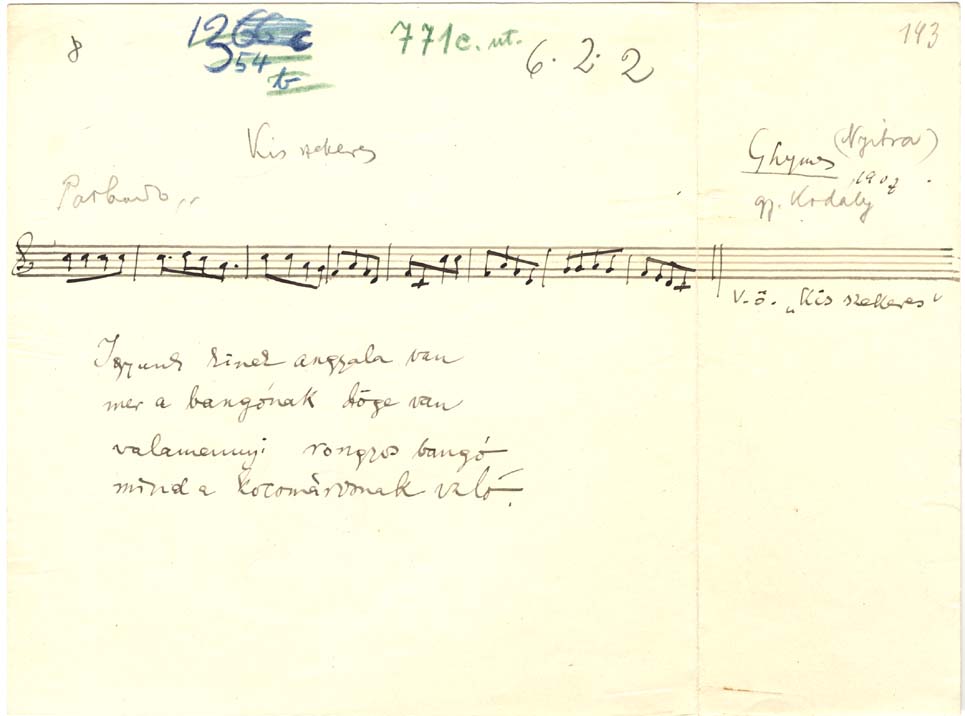 8
1266 c
354
b
771c. ut.
6. 2. 2
193
Kis szekeres
Ghymes (Nyitra)
1907.
gy. Kodály
Parlando
V. ö. „Kis szekeres"
Igyunk kinek angyala van
mer a bangónak tőge van
valamennyi rongyos bangó
mind a kocomárosnak való.